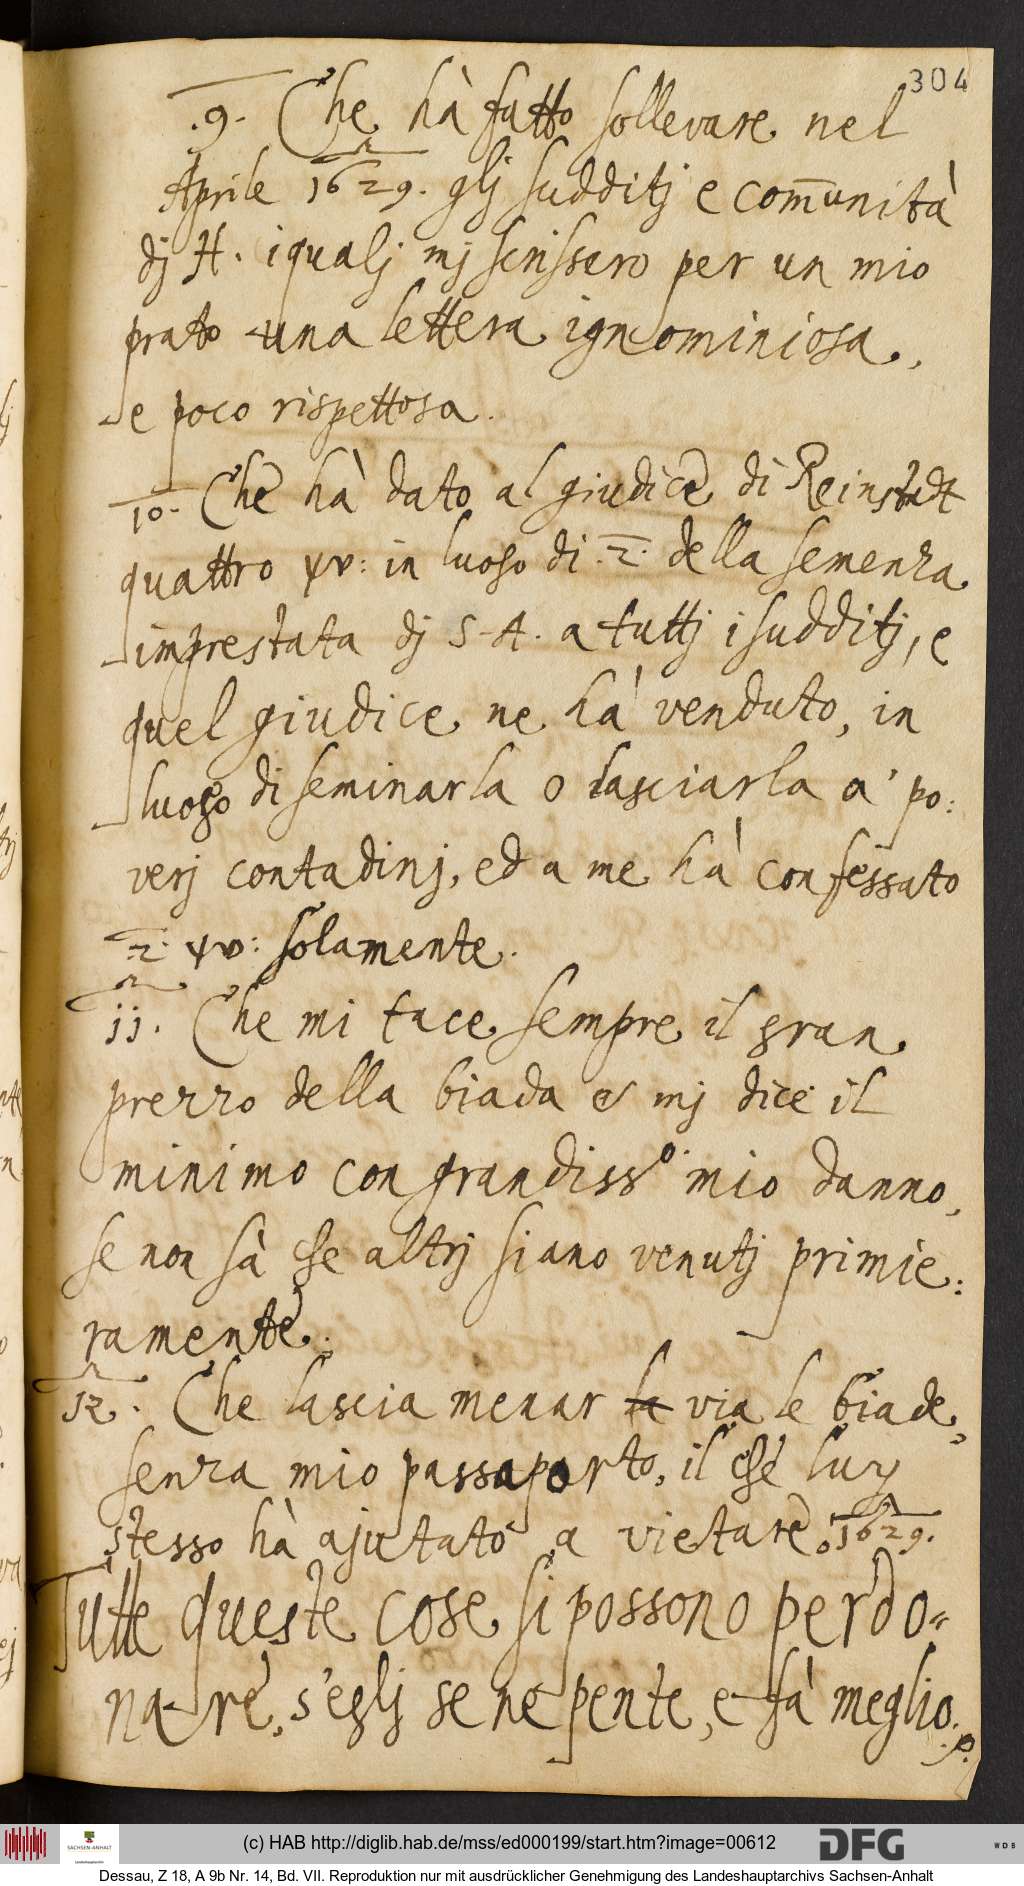 304
.9. Che hà fatto sollevare nel
Aprile 1629. glj sudditj e com̅unità
dj H. i qualj mj scrissero per un mio
prato una lettera ignominiosa,
e poco rispettosa.
10. Che hà dato al giudice di Reinstedt
quattro w: in luogo di .2. della semenza
imprestata dj S. A. a tuttj i sudditj, e
quel giudice ne hà venduto, in
luogo di seminarla o lasciarla a' po:
verj contadinj, ed a me hà confessato
2. w: solamente.
jj. Che mi tace sempre il gran
prezzo della biada e mj dice il
minimo con grandissº. mio danno,
se non sà che altrj siano venutj primie:
ramente.
12. Che lascia menar la via le biade,
senza mio passaporto, il che luy
stesso hà ajutato a vietare. 1629.
Tutte queste cose si possono perdo=
nare, s'eglj se ne pente, e fà meglio. p.
(c) HAB http://diglib.hab.de/mss/ed000199/start.htm?image=00612
SACHSEN-ANHALT
DFG
WDB
Dessau, Z 18, A 9b Nr. 14, Bd. VII. Reproduktion nur mit ausdrücklicher Genehmigung des Landeshauptarchivs Sachsen-Anhalt